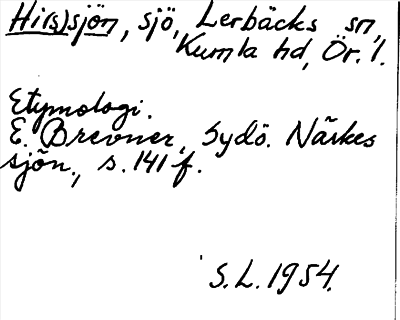 Hi(s)sjön, sjö, Lerbäcks sn,
Kumla hd, Ör. l.
Etymologi.
E. Brevner, Sydö. Närkes
sjön., s. 141 f.
S.L. 1954.